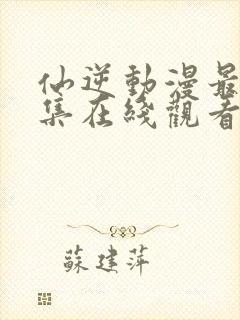 仙逆動漫最
集在綫觀看
蘇建萍